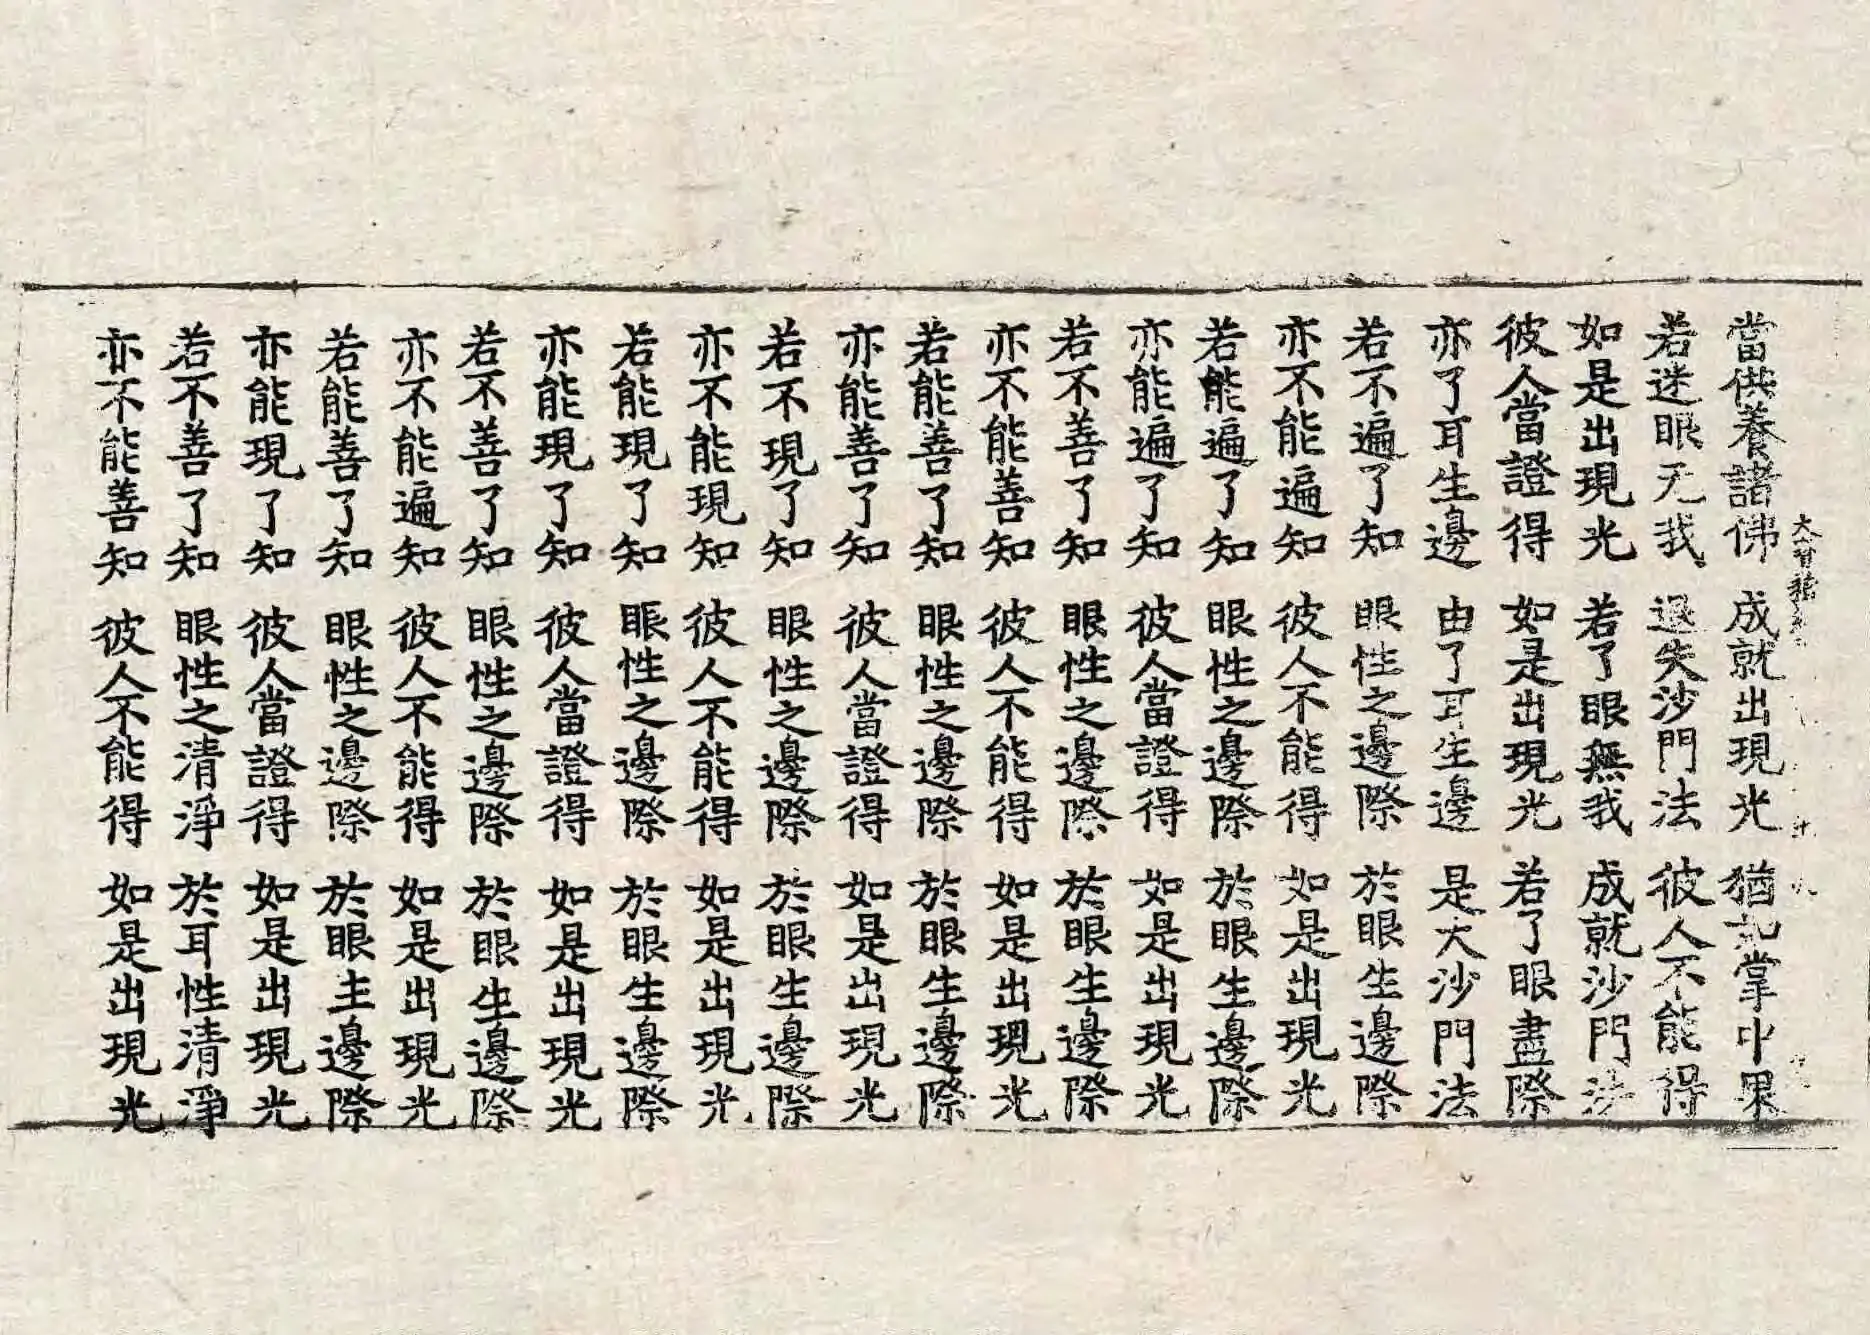 當供養諸佛 成就出現光 猶如掌中果
若迷眼无我 退失沙門法 彼人不能得
如是出現光 若了眼無我 成就沙門法
彼人當證得 如是出現光 若了眼盡際
亦了耳生邊 由了耳生邊 是大沙門法
若不遍了知 眼性之邊際 於眼生邊際
亦不能遍知 彼人不能得 如是出現光
若能遍了知 眼性之邊際 於眼生邊際
亦能遍了知 彼人當證得 如是出現光
若不善了知 眼性之邊際 於眼生邊際
亦不能善知 彼人不能得 如是出現光
若能善了知 眼性之邊際 於眼生邊際
亦能善了知 彼人當證得 如是出現光
若不現了知 眼性之邊際 於眼生邊際
亦不能現知 彼人不能得 如是出現光
若能現了知 眼性之邊際 於眼生邊際
亦能現了知 彼人當證得 如是出現光
若不善了知 眼性之邊際 於眼生邊際
亦不能遍知 彼人不能得 如是出現光
若能善了知 眼性之邊際 於眼主邊際
亦能現了知 彼人當證得 如是出現光
若不善了知 眼性之清淨 於耳性清淨
亦不能善知 彼人不能得 如是出現光